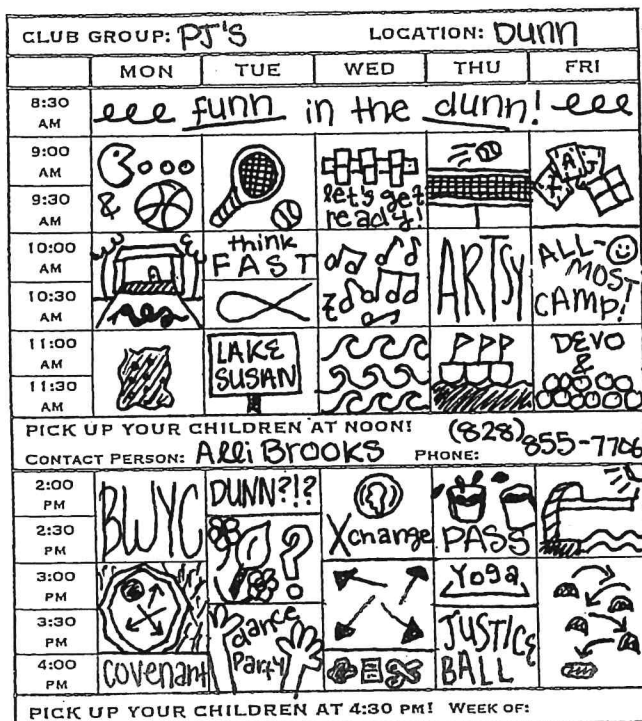 CLUB GROUP: PJ'S LOCATION: DUNN
MON TUE WED THU FRI
8:30 AM funn in the dunn!
9:00 AM
& let's get ready! K A J
9:30 AM
10:00 AM think FAST ARTSY ALL-MOST CAMP!
10:30 AM
11:00 AM LAKE SUSAN DEVO &
11:30 AM
PICK UP YOUR CHILDREN AT NOON!
CONTACT PERSON: Alli Brooks PHONE: (828) 855-7706
2:00 PM BWYC DUNN?!? Xchange PASS
2:30 PM ?
3:00 PM Yoga
3:30 PM dance Party JUSTICE BALL
4:00 PM covenant
PICK UP YOUR CHILDREN AT 4:30 PM! WEEK OF: